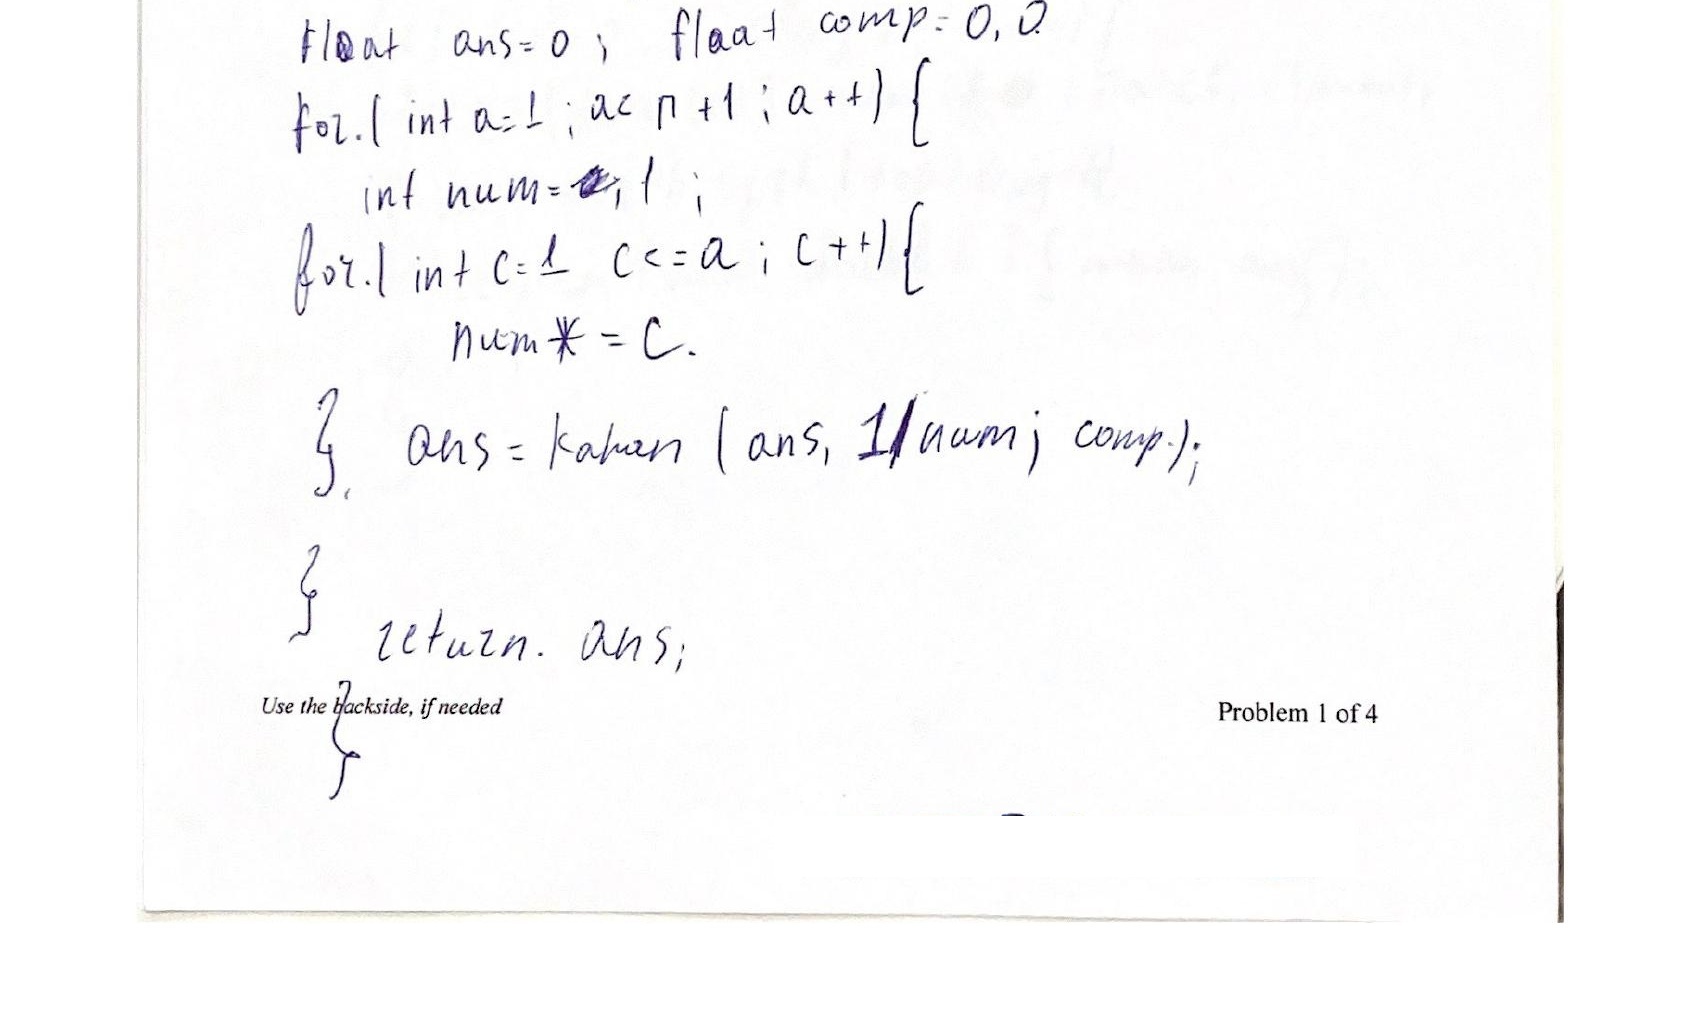 float ans=0; float comp=0,0
for.( int a=1; a< n+1; a++) {
int num= 1;
for.( int c=1 c<=a; c++) {
num* = c.
}. ans = kahan ( ans, 1/num; comp.);
}
return. ans;
Use the backside, if needed
Problem 1 of 4
}